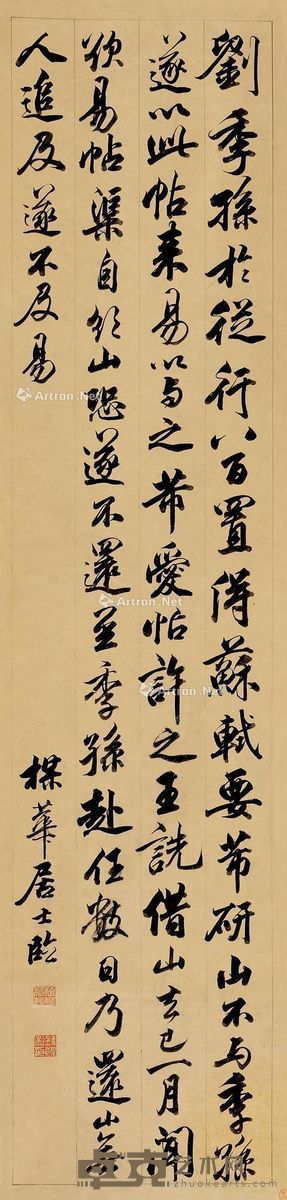 劉季孫於從行八百置得蘇軾要芾研山不与季孫
遂以此帖来易以与之芾愛帖許之王詵借山去已一月聞
欲易帖渠自
山恐遂不還至季孫赴任數日乃還山
人追及遂不及易
楳華居士臨
Artron.Net
卓克艺术网
zhuokearts.com